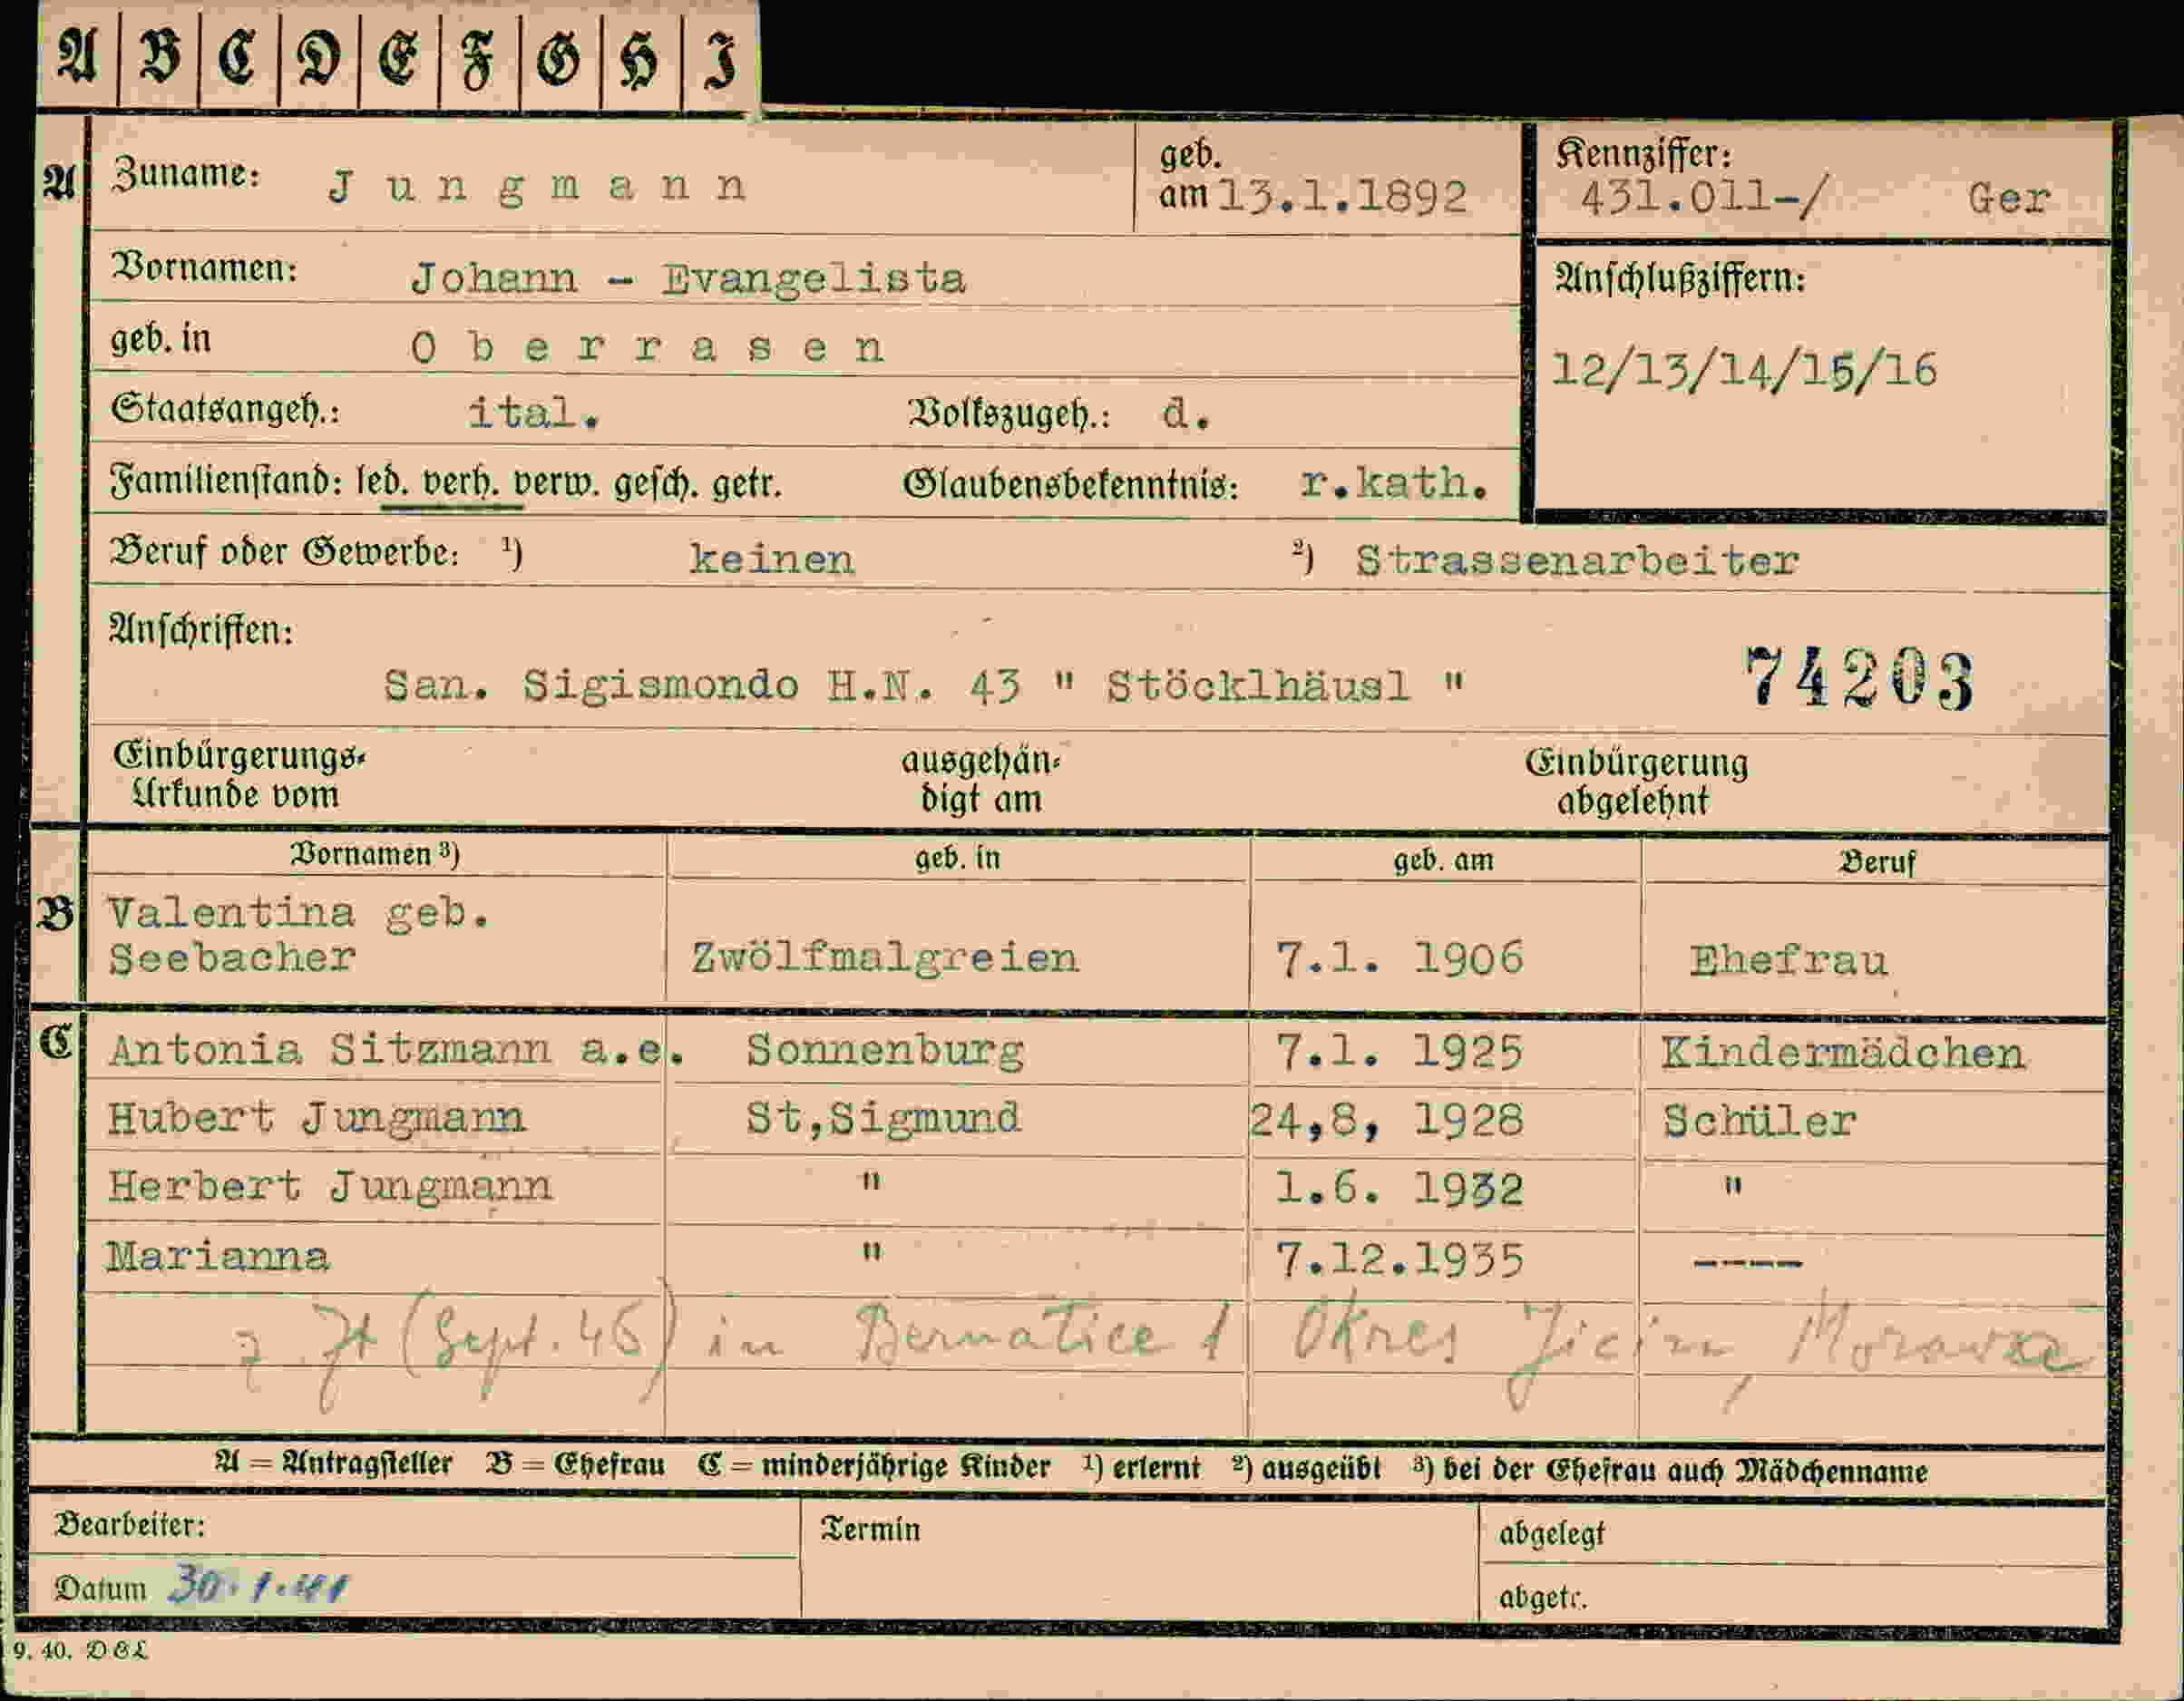 A B C D E F G H I
A Zuname: Jungmann geb. am 13.1.1892 Kennziffer: 431.011-/ Ger
Vornamen: Johann - Evangelista Anschlußziffern:
geb. in Oberrasen 12/13/14/15/16
Staatsangeh.: ital. Volkszugeh.: d.
Familienstand: led. verh. verw. gesch. getr. Glaubensbekenntnis: r.kath.
Beruf oder Gewerbe: ¹) keinen ²) Strassenarbeiter
Anschriften:
San. Sigismondo H.N. 43 " Stöcklhäusl " 74203
Einbürgerungs-Urkunde vom ausgehändigt am Einbürgerung abgelehnt
Vornamen ³) geb. in geb. am Beruf
B Valentina geb.
Seebacher Zwölfmalgreien 7.1. 1906 Ehefrau
C Antonia Sitzmann a.e. Sonnenburg 7.1. 1925 Kindermädchen
Hubert Jungmann St,Sigmund 24,8, 1928 Schüler
Herbert Jungmann " 1.6. 1932 "
Marianna " 7.12.1935 ----
z. Zt (Sept. 46) in Bernatice 1 Okres Jicin,
A = Antragsteller B = Ehefrau C = minderjährige Kinder ¹) erlernt ²) ausgeübt ³) bei der Ehefrau auch Mädchenname
Bearbeiter: Termin abgelegt
Datum 30.1.41 abgetr.
9. 40. DEL